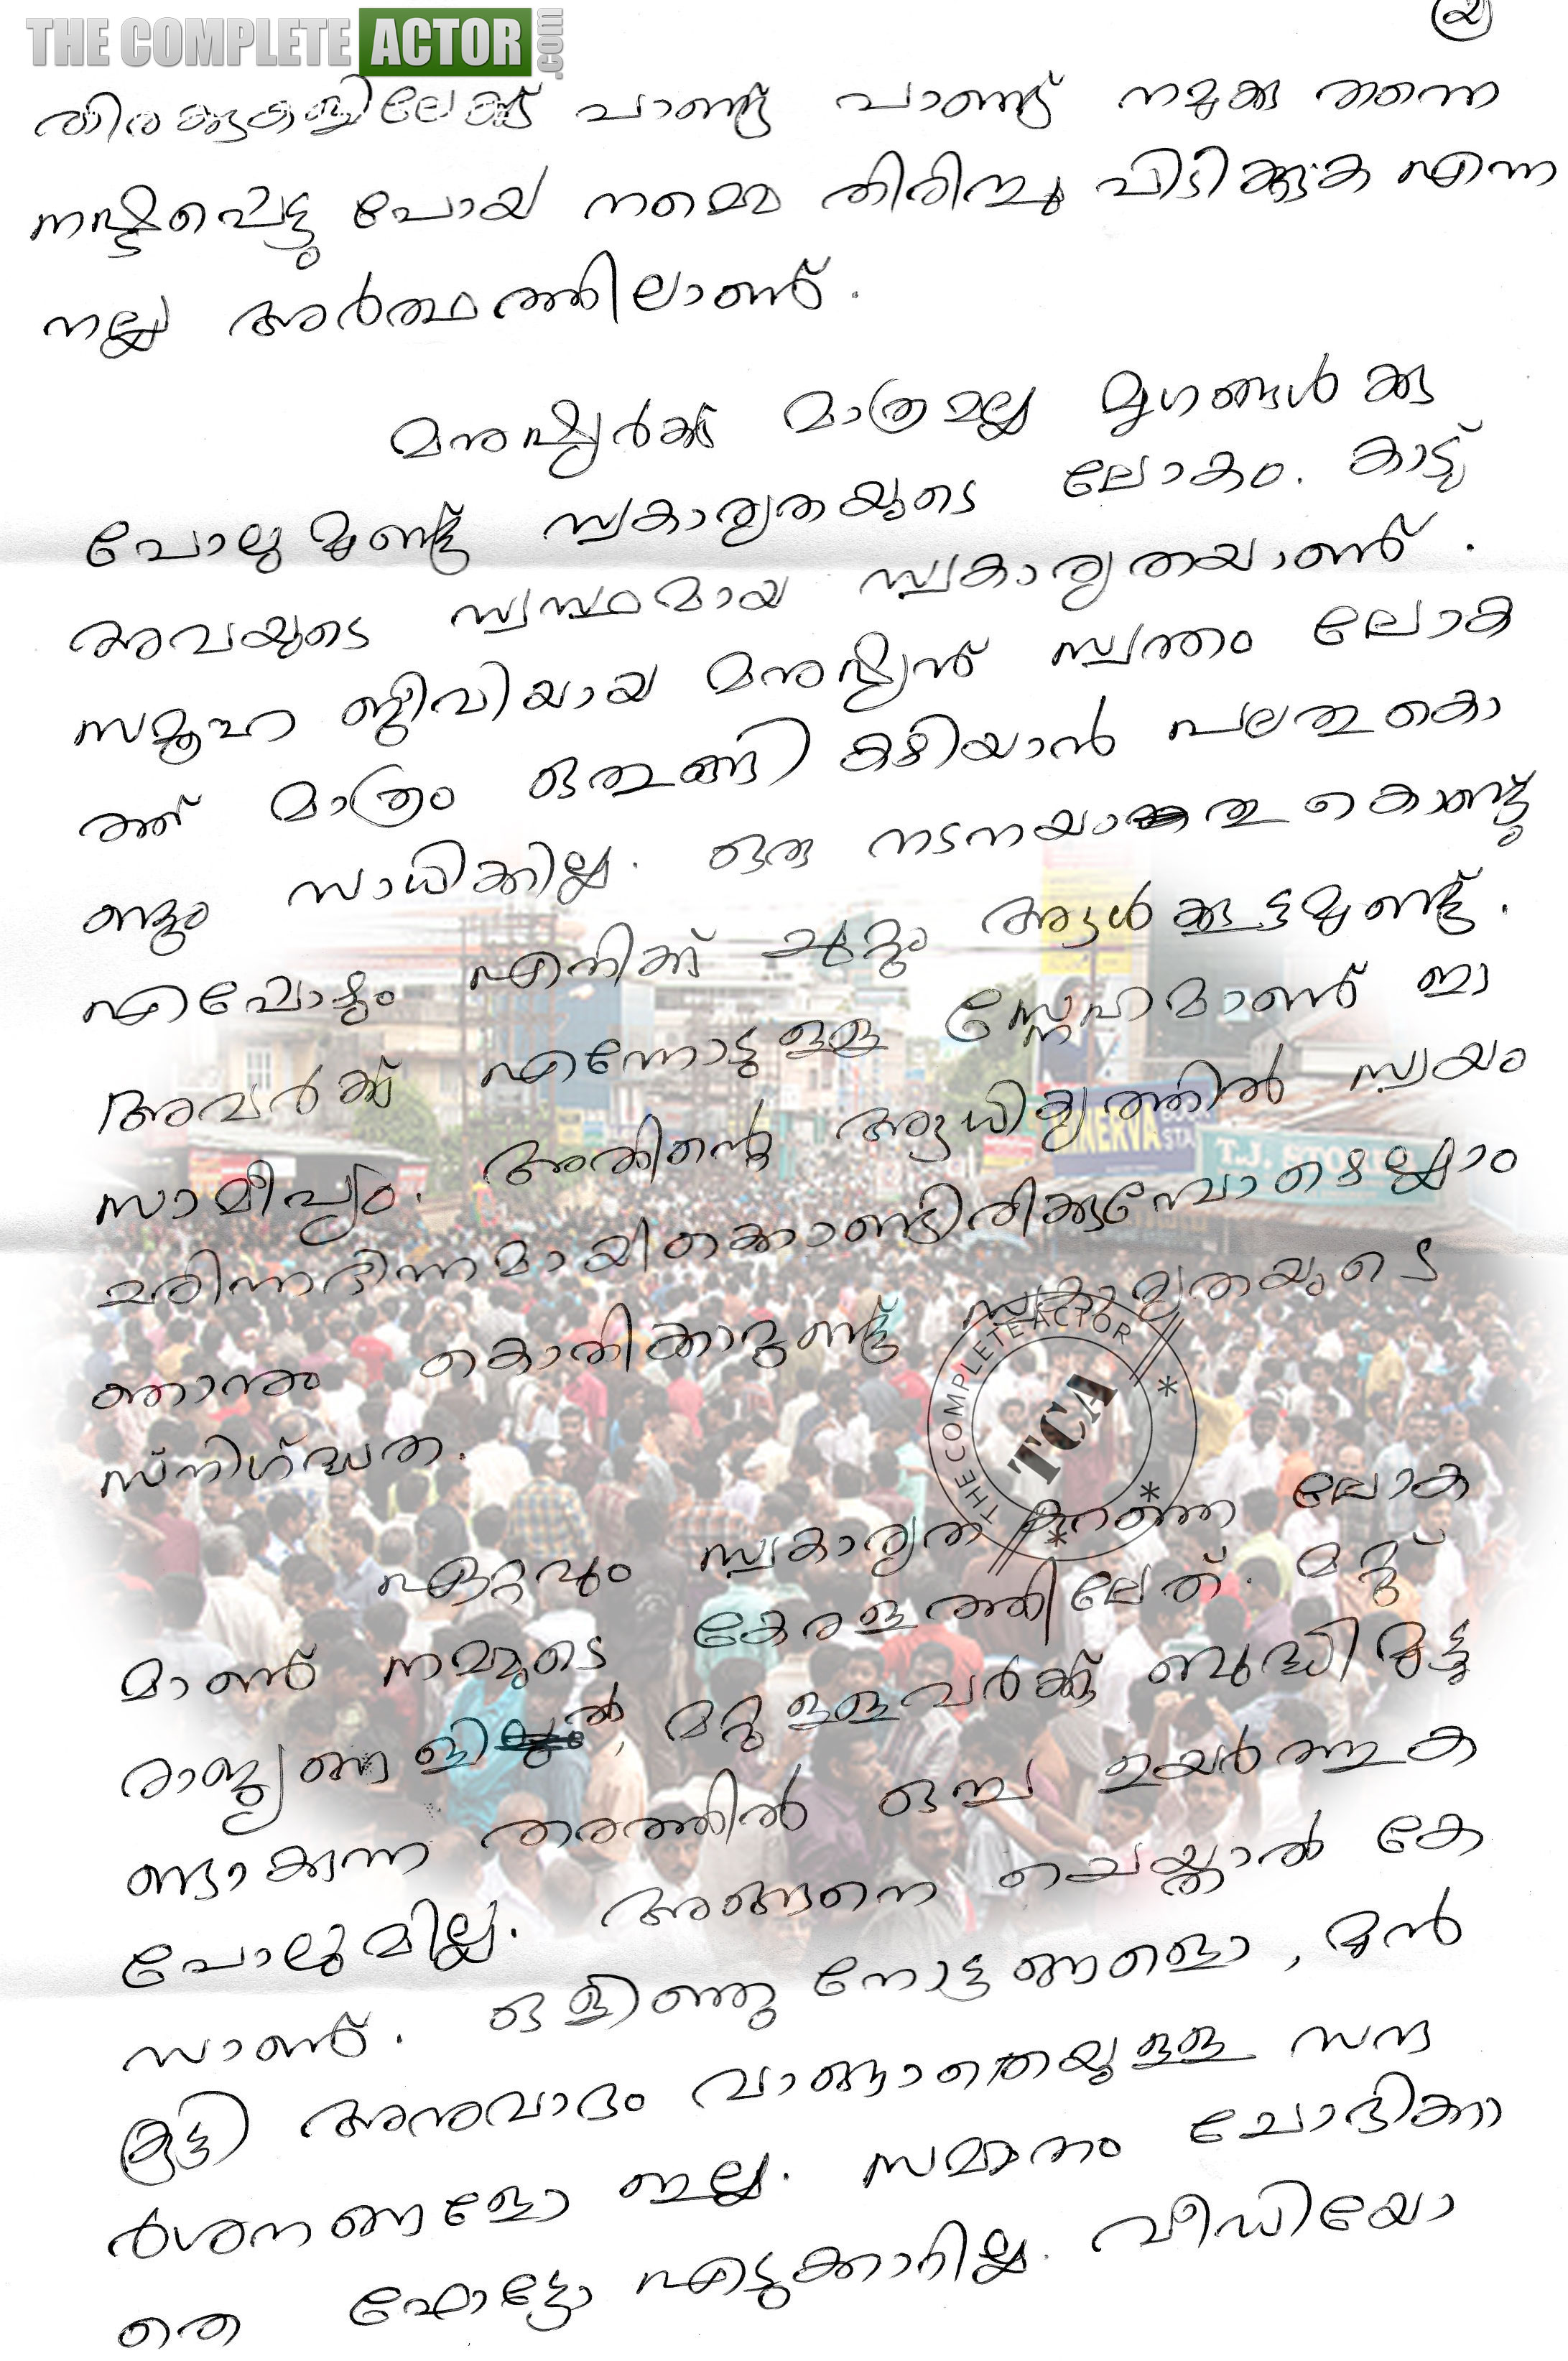 THE COMPLETE ACTOR .com
൨
തിരക്കുകളിലേക്ക് പാഞ്ഞ് പാഞ്ഞ് നമുക്കു തന്നെ
നഷ്ടപ്പെട്ടു പോയ നമ്മെ തിരിച്ചു പിടിക്കുക എന്ന
നല്ല അർത്ഥത്തിലാണ്.
മനുഷ്യർക്ക് മാത്രമല്ല മൃഗങ്ങൾക്കു
പോലുമുണ്ട് സ്വകാര്യതയുടെ ലോകം. കാട്
അവയുടെ സ്വസ്ഥമായ സ്വകാര്യതയാണ്.
സമൂഹ ജീവിയായ മനുഷ്യന് സ്വന്തം ലോക
ത്ത് മാത്രം ഒതുങ്ങി കഴിയാൻ പലതുകൊ
ണ്ടും സാധിക്കില്ല. ഒരു നടനായതുകൊണ്ടു
എപ്പോഴും എനിക്ക് ചുറ്റും ആൾക്കൂട്ടമുണ്ട്.
അവർക്ക് എന്നോടുള്ള സ്നേഹമാണ് ഈ
സാമീപ്യം. അതിന്റെ ആധിക്യത്തിൽ സ്വയം
ഛിന്നഭിന്നമായിക്കൊണ്ടിരിക്കുമ്പോഴെല്ലാം
ഞാനും കൊതിക്കാറുണ്ട് സ്വകാര്യതയുടെ
സ്നിഗ്ദ്ധത.
THE COMPLETE ACTOR
TCA
ഏറ്റവും സ്വകാര്യത കുറഞ്ഞ ലോക
മാണ് നമ്മുടെ കേരളത്തിലേത്. മറ്റ്
രാജ്യങ്ങളിൽ, മറ്റുള്ളവർക്ക് ബുദ്ധിമുട്ടു
ണ്ടാക്കുന്ന തരത്തിൽ ഒച്ച ഉയർത്തുക
പോലുമില്ല. അങ്ങനെ ചെയ്താൽ കേ
സാണ്. ഒളിഞ്ഞു നോട്ടങ്ങളൊ, മുൻ
കൂട്ടി അനുവാദം വാങ്ങാതെയുള്ള സന്ദ
ർശനങ്ങളോ ഇല്ല. സമ്മതം ചോദിക്കാ
തെ ഫോട്ടോ എടുക്കാറില്ല. വീഡിയോ
MINERVA
T.J. STORES